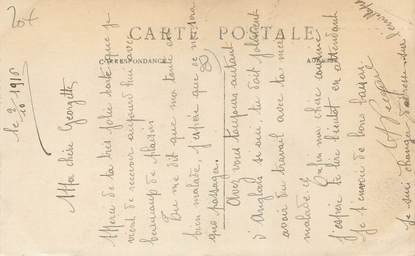 CARTE POSTALE
CORRESPONDANCE
ADRESSE
le 2/10 1915
Ma chère Georgette
Merci de ta très jolie carte que je
vient de recevoir aujourd'hui avec
beaucoup de plaisir
Tu me dit que ma tante est
bien malade, j'espère que ce ne sera
que passager.
Avez vous toujours autant
d'Anglais si oui, tu doit sûrement
avoir du travail avec ta mère
malade
ma chère cousine
j'espère te lire bientôt en attendant
je t'envoie de bons baisers
je suis changé d'adresse